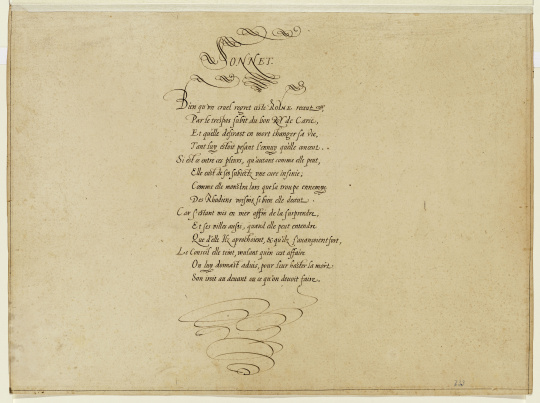 SONNET.
Bien qu'un cruel regret ceste ROINE receut
Par le trespas subit du bon Roy de Carie,
Et qu'elle desirant en mort changer sa vie,
Tant luy estoit pesant l'ennuy qu'elle conceut.
Si est ce entre ces pleurs, qu'autant comme elle peut,
Elle eust de ses subiectz une cure infinie;
Comme elle monstra lors que la troupe ennemye
Des Rhodiens voisins si bien elle deceut.
Car s'estant mis en mer affin de la surprendre,
Et ses villes aussi, quand elle peut entendre
Que d'elle ilz aprochoient, & qu'ilz s'avançoient fort,
Le Conseil elle tient, voulant qu'en cest affaire
On luy donnast advis, pour leur haster la mort
S'on iroit au devant ou ce qu'on devoit faire.